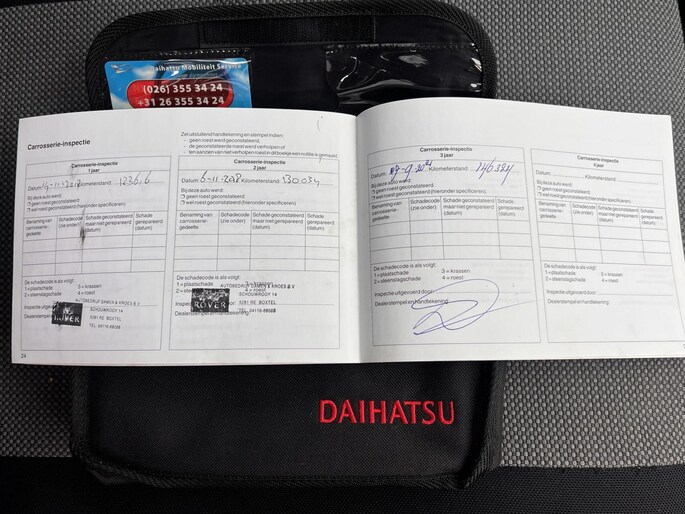 Daihatsu Mobiliteit Service
(026) 355 34 24
+31 26 355 34 24
Carrosserie-inspectie
Zet uitsluitend handtekening en stempel indien:
- geen roest werd geconstateerd,
- de geconstateerde roest werd verholpen of
- ten aanzien van niet verholpen roest in dit boekje een notitie is gemaakt
Carrosserie-inspectie
1 jaar
Datum: Kilometerstand:
Bij deze auto werd:
geen roest geconstateerd
wel roest geconstateerd (hieronder specificeren)
Benaming van carrosserie-gedeelte
Schadecode (zie onder)
Schade geconstateerd maar niet gerepareerd (datum)
Schade gerepareerd (datum)
De schadecode is als volgt:
1 = plaatschade 3 = krassen
2 = steenslagschade 4 = roest
Inspectie uitgevoerd
Dealerstempel en
AUTOBEDRIJF
SCHOUWROOY 14
5281 RE BOXTEL
ROVER
24
Carrosserie-inspectie
2 jaar
Datum: 6-11- Kilometerstand: 130034
Bij deze auto werd:
geen roest geconstateerd
wel roest geconstateerd (hieronder specificeren)
Benaming van carrosserie-gedeelte
Schadecode (zie onder)
Schade geconstateerd maar niet gerepareerd (datum)
Schade gerepareerd (datum)
De schadecode is als volgt:
1 = plaatschade 3 = krassen
2 = steenslagschade 4 = roest
AUTOBEDRIJF
SCHOUWROOY 14
5281 RE BOXTEL
ROVER
Carrosserie-inspectie
3 jaar
Datum: Kilometerstand: 146324
Bij deze auto werd:
geen roest geconstateerd
wel roest geconstateerd (hieronder specificeren)
Benaming van carrosserie-gedeelte
Schadecode (zie onder)
Schade geconstateerd maar niet gerepareerd (datum)
Schade gerepareerd (datum)
De schadecode is als volgt:
1 = plaatschade 3 = krassen
2 = steenslagschade 4 = roest
Inspectie uitgevoerd door:
Dealerstempel en handtekening:
Carrosserie-inspectie
4 jaar
Datum: Kilometerstand:
Bij deze auto werd:
geen roest geconstateerd
wel roest geconstateerd (hieronder specificeren)
Benaming van carrosserie-gedeelte
Schadecode (zie onder)
Schade geconstateerd maar niet gerepareerd (datum)
Schade gerepareerd (datum)
De schadecode is als volgt:
1 = plaatschade 3 = krassen
2 = steenslagschade 4 = roest
Inspectie uitgevoerd door:
Dealerstempel en handtekening:
DAIHATSU